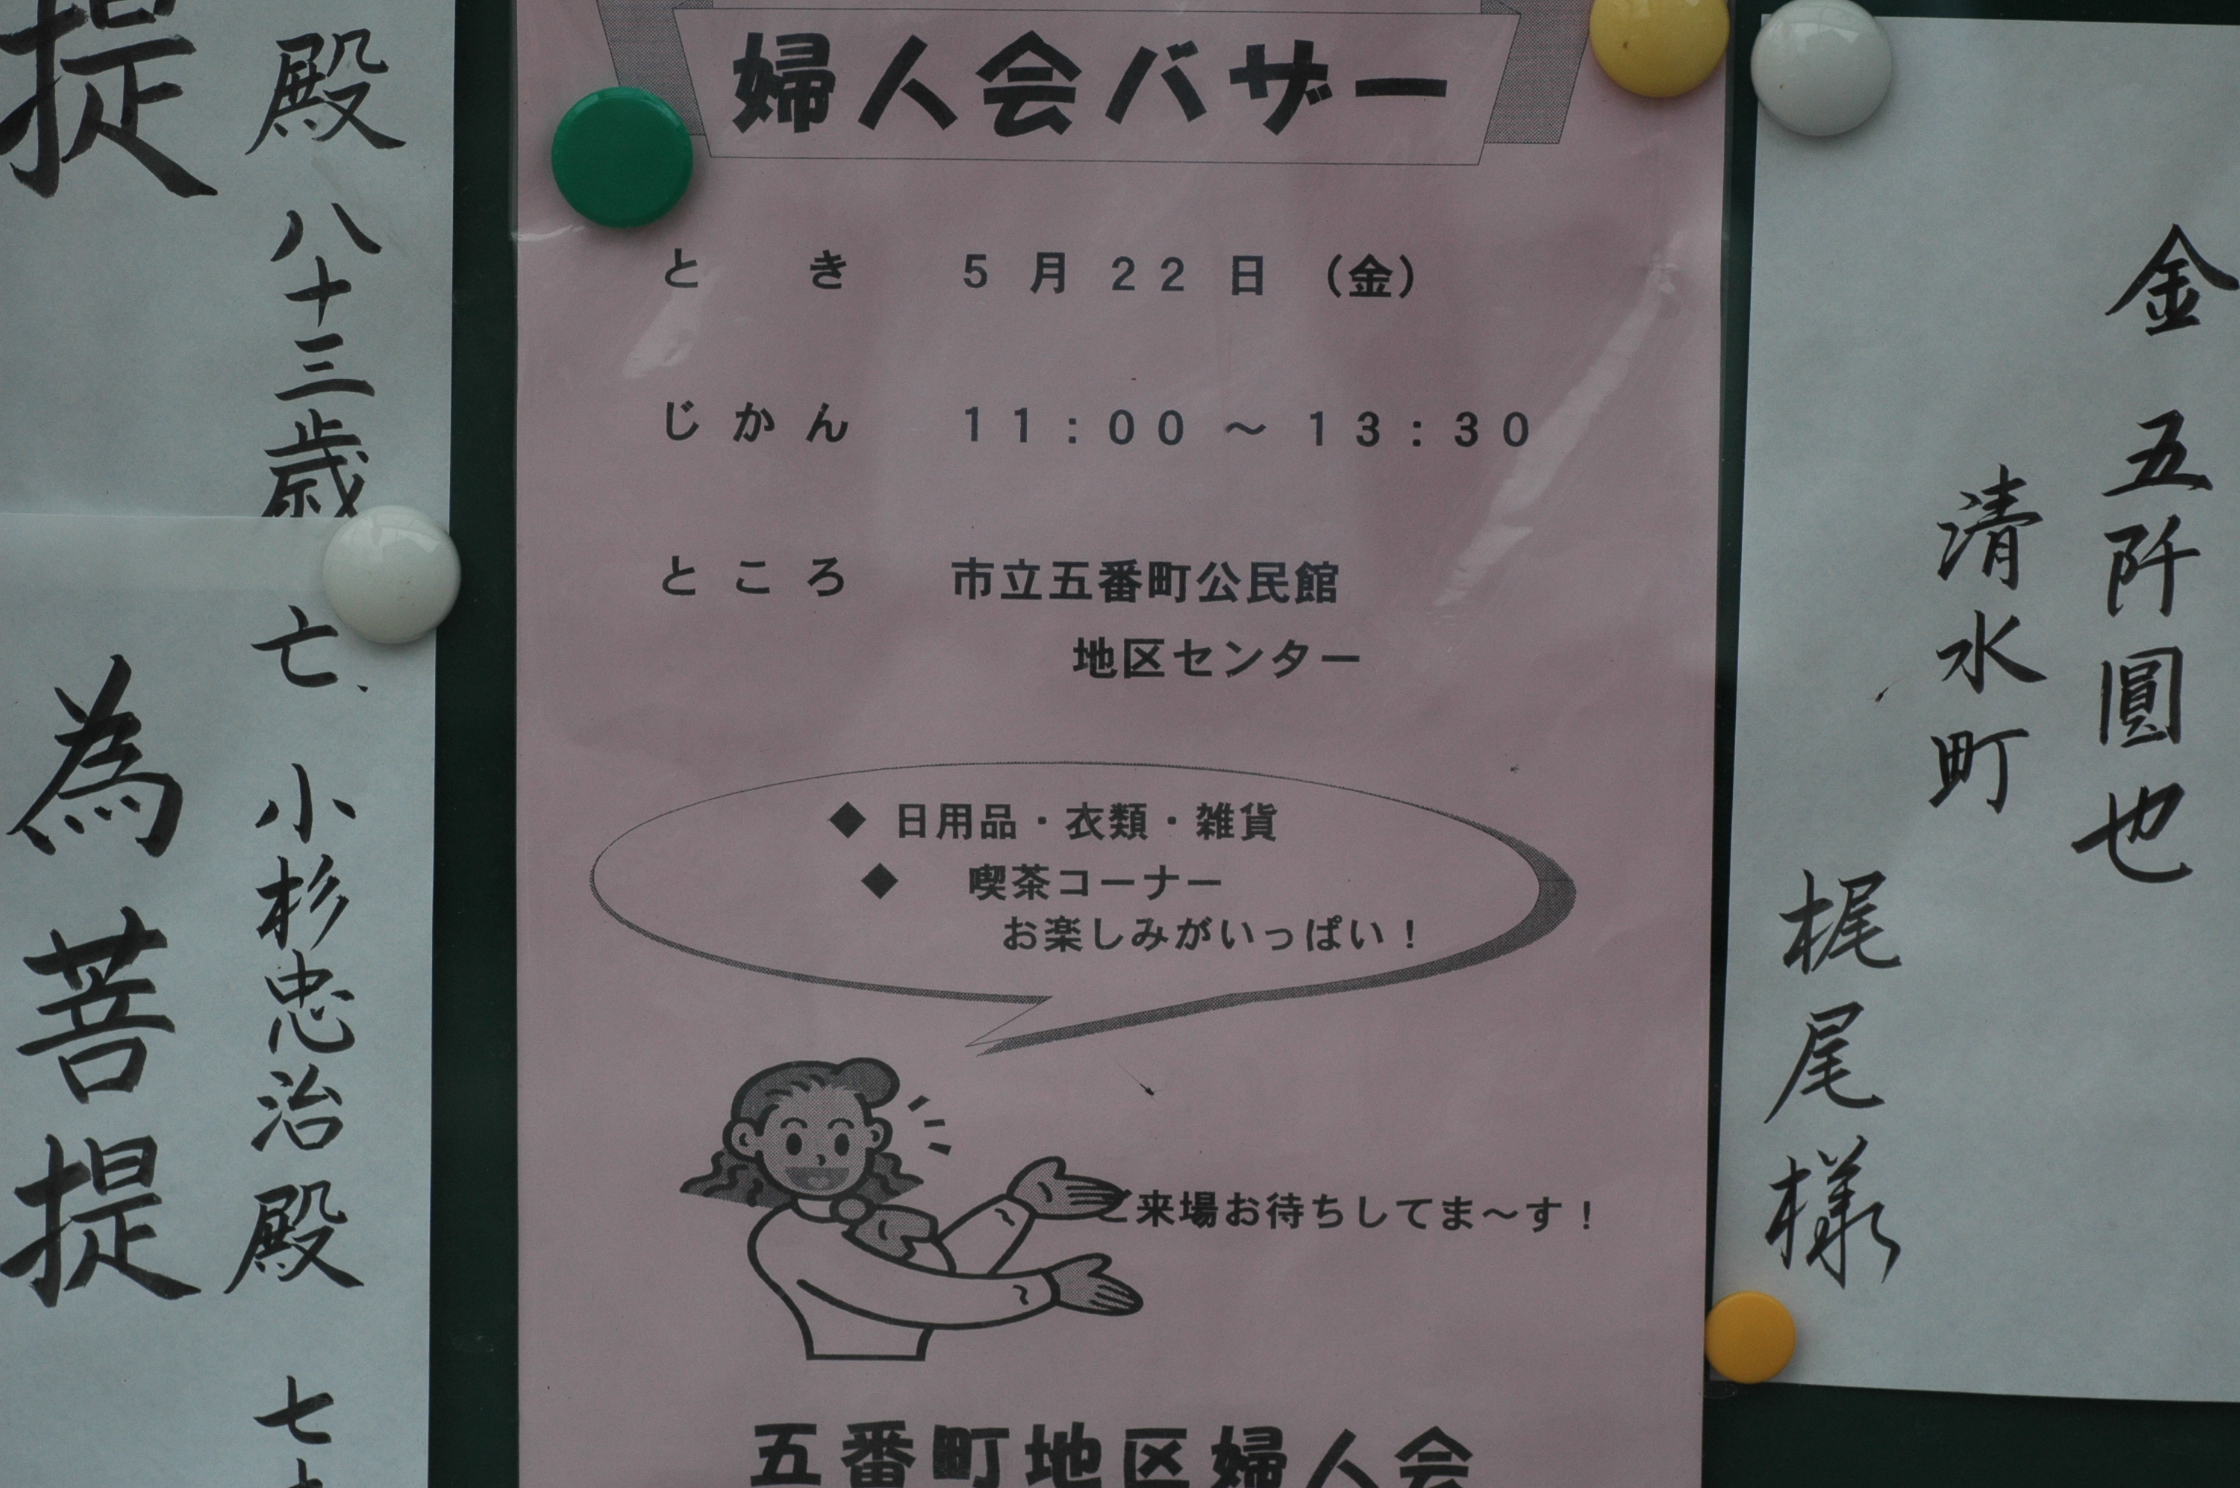 婦人会バザー
とき 5月22日（金）
じかん 11:00～13:30
ところ 市立五番町公民館
地区センター
◆ 日用品・衣類・雑貨
◆ 喫茶コーナー
お楽しみがいっぱい！
ご来場お待ちしてま～す！
五番町地区婦人会
金五阡圓也
清水町
梶尾様
殿 八十三歳
提
亡 小杉忠治殿 七
為菩提